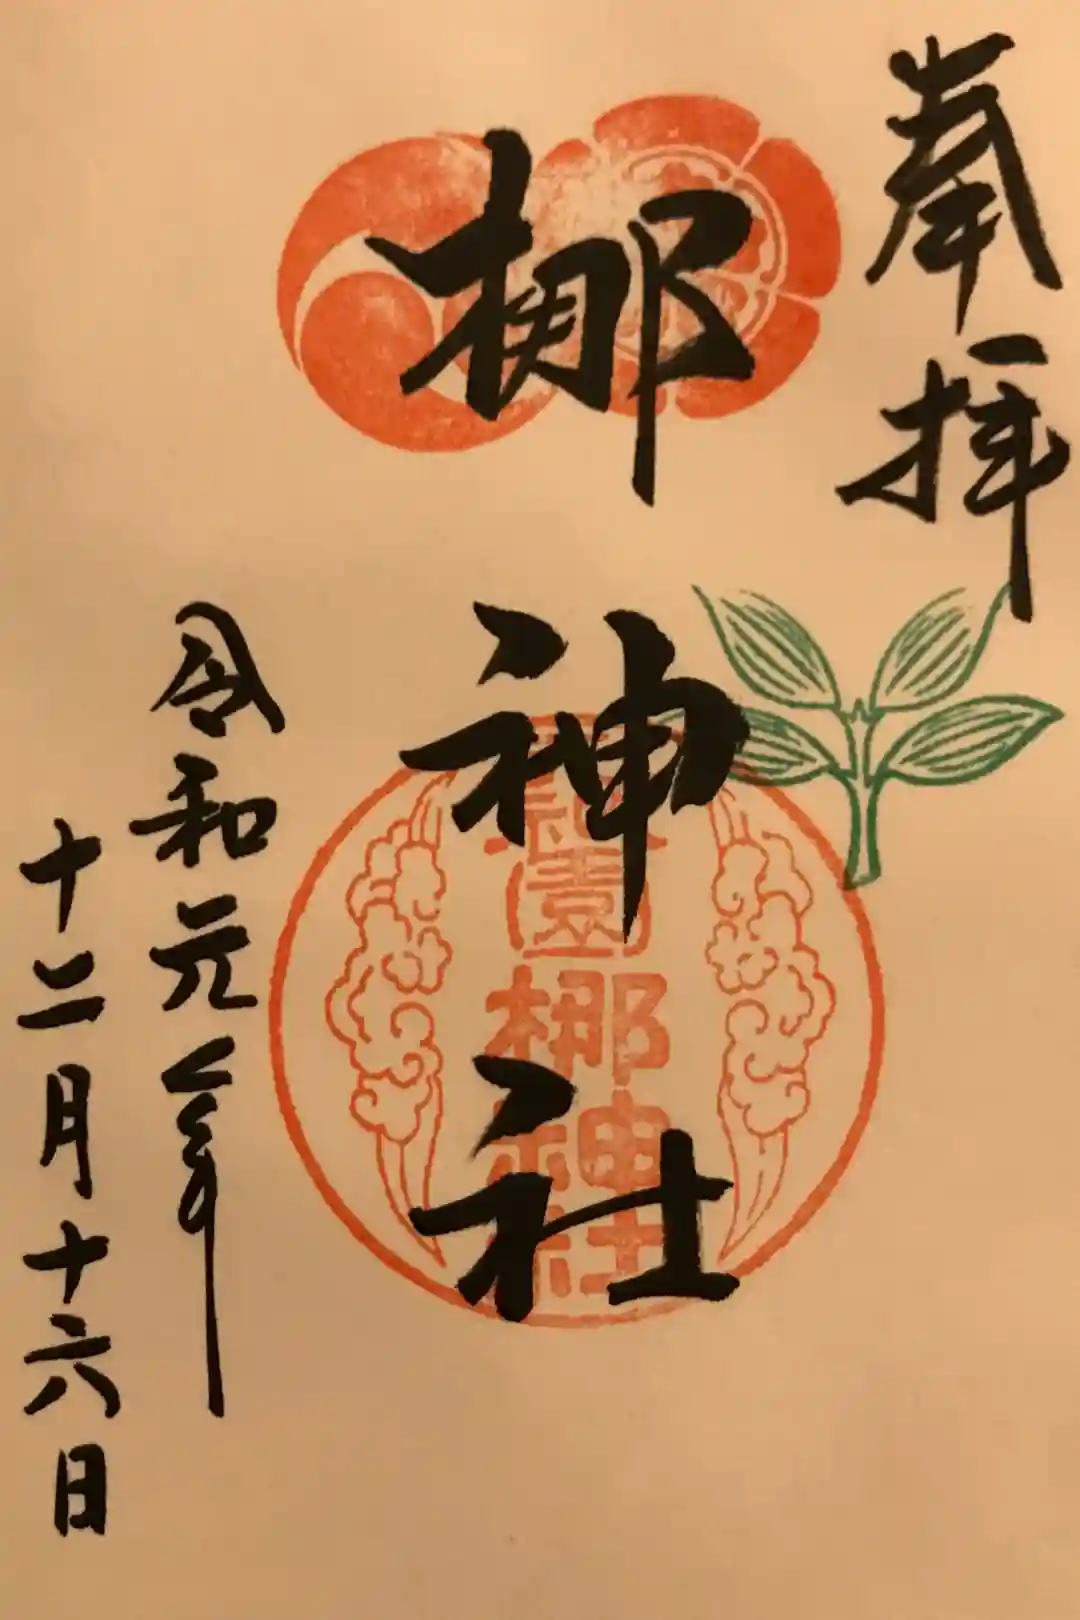 奉拝
梛神社
祇園
梛神社
令和元年
十二月十六日